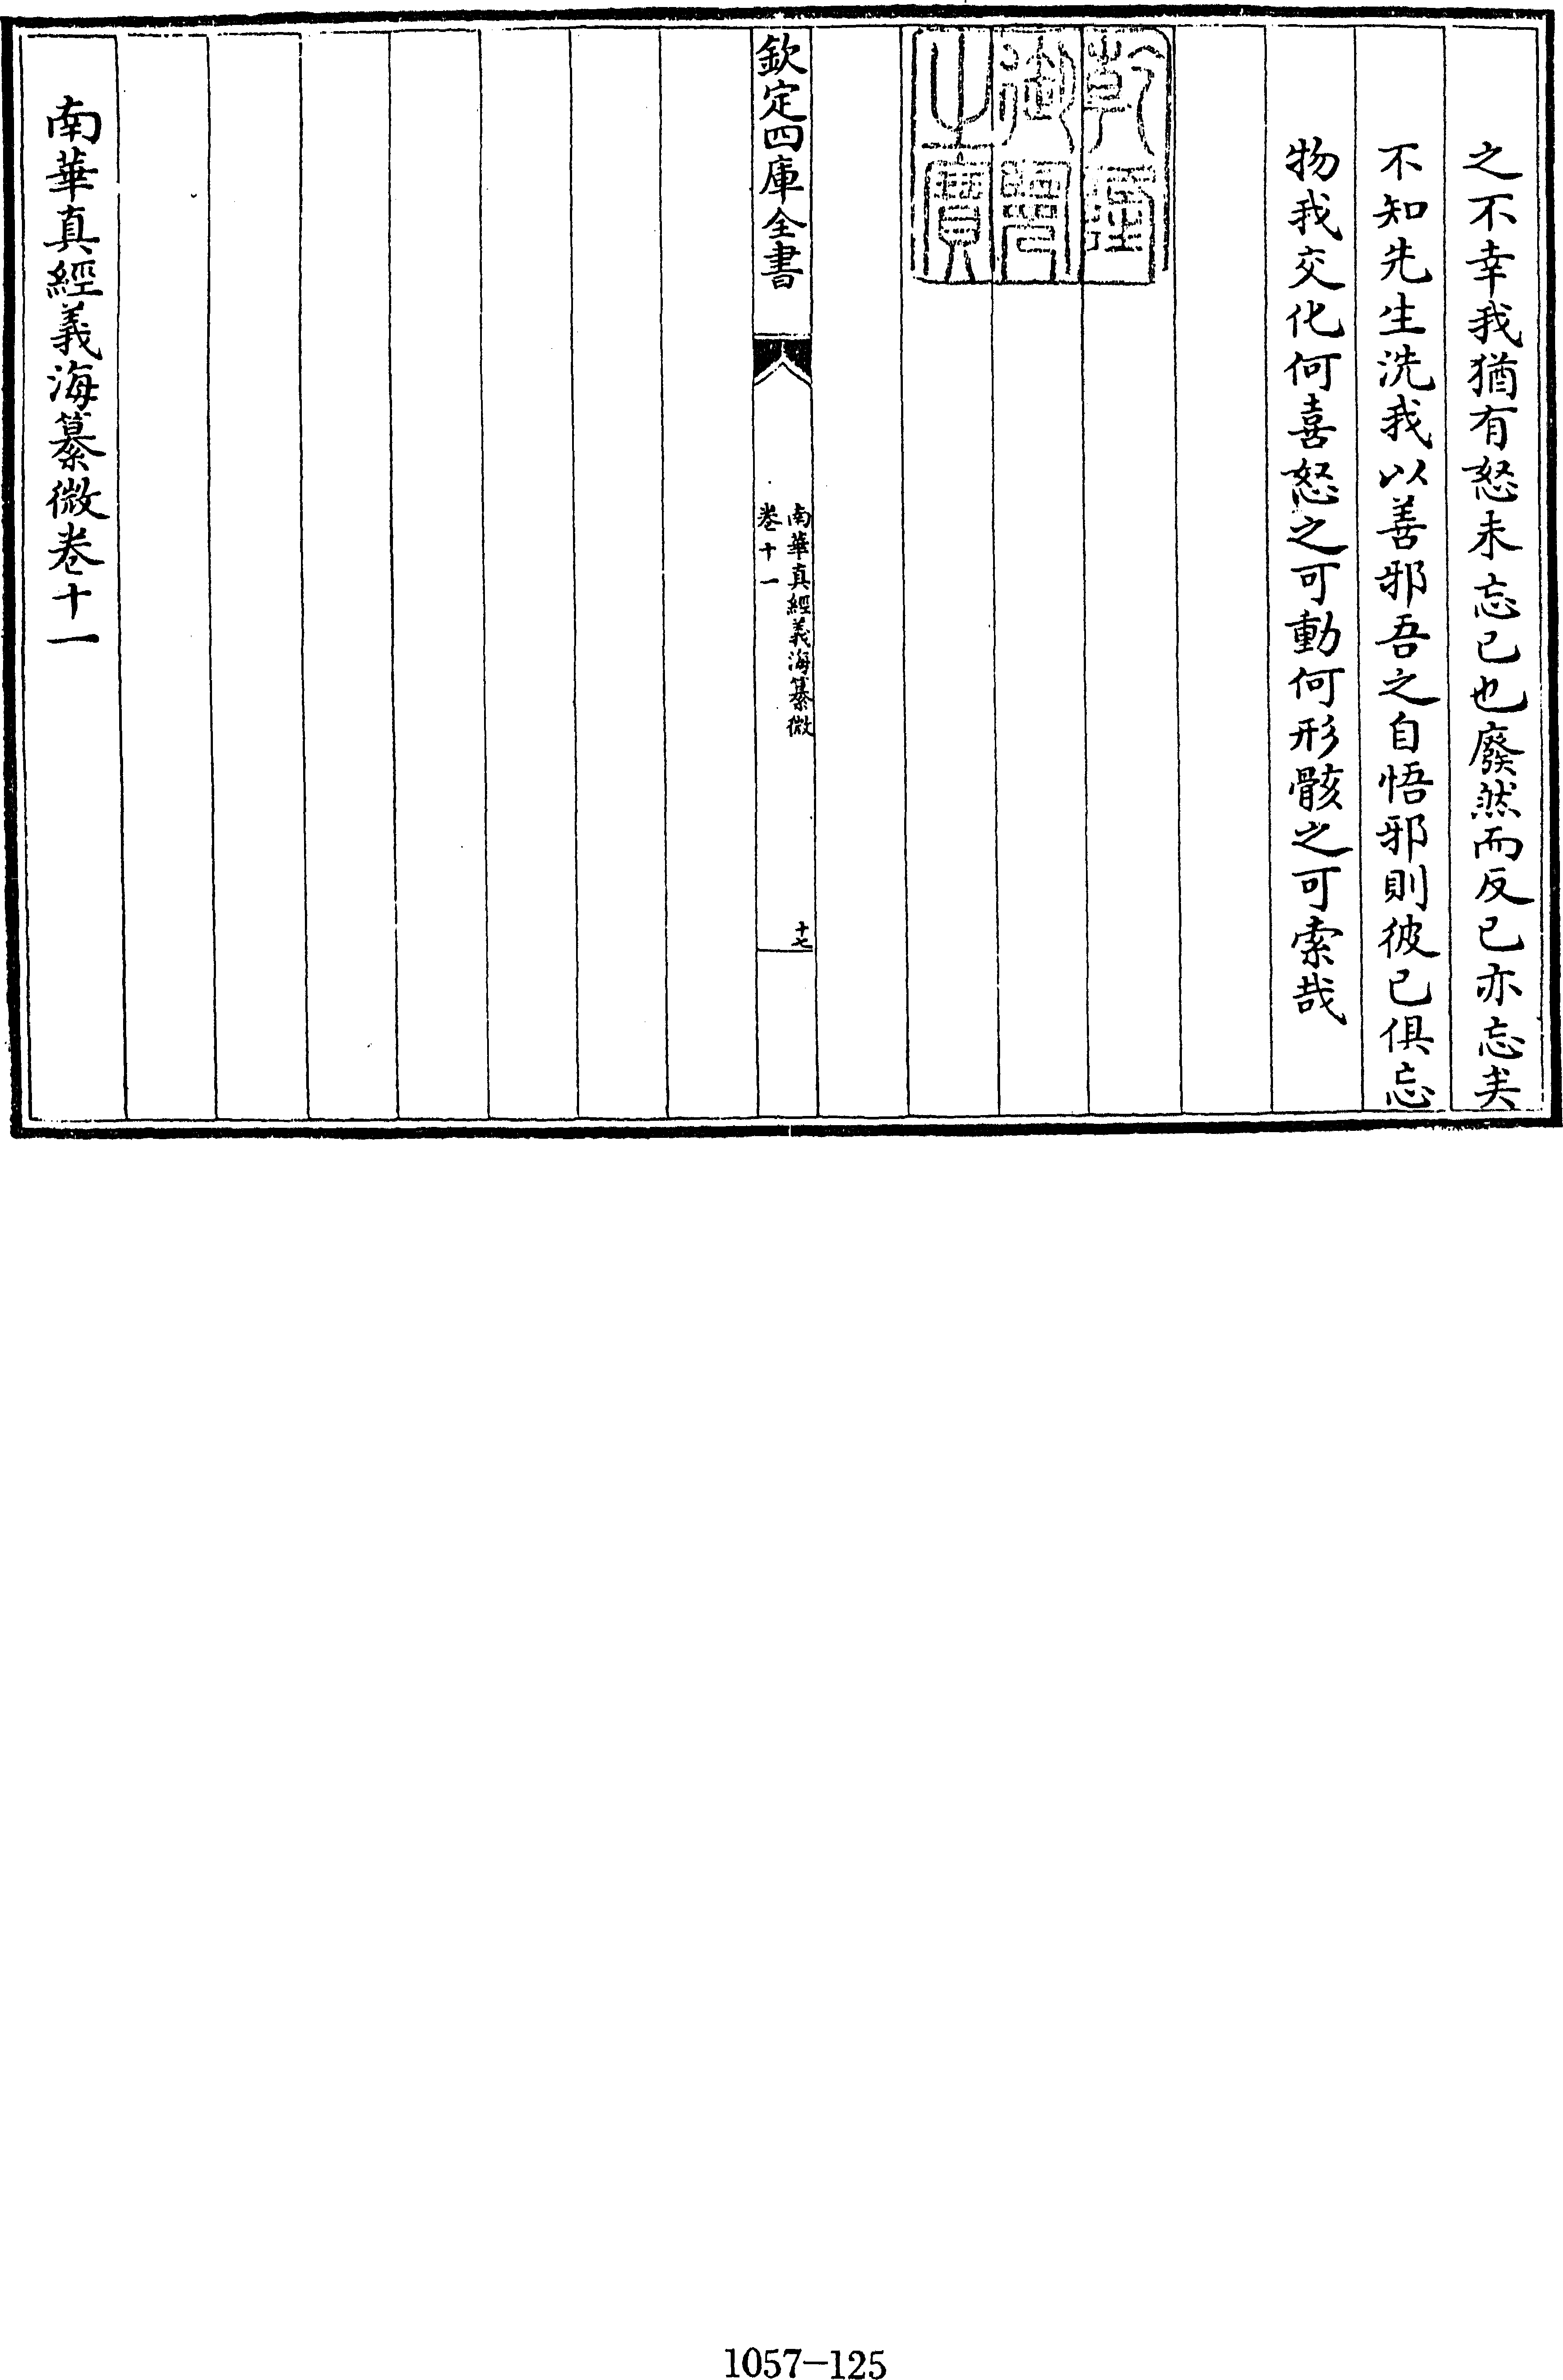 之不幸我猶有怒未忘已也廢然而反已亦忘矣
不知先生洗我以善邪吾之自悟邪則彼已俱忘
物我交化何喜怒之可動何形骸之可索哉
乾隆
御覽
之寶
欽定四庫全書
南華真經義海纂微
卷十一
十七
南華真經義海纂微卷十一
1057-125